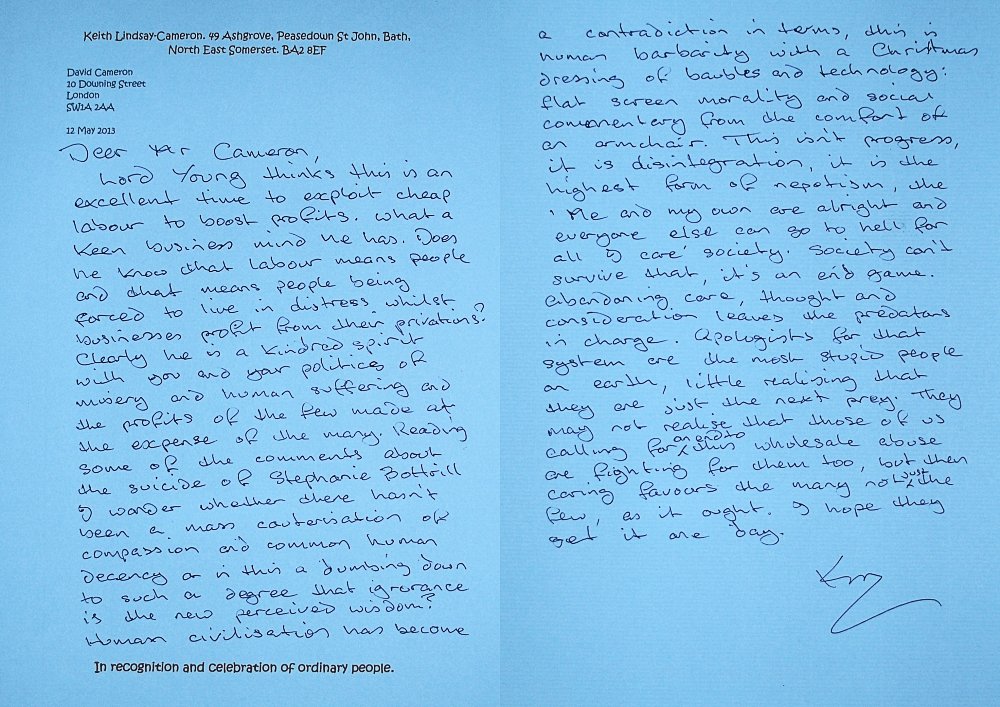 Keith Lindsay-Cameron. 49 Ashgrove, Peasedown St John, Bath,
North East Somerset. BA2 8EF
David Cameron
10 Downing Street
London
SW1A 2AA
12 May 2013
Dear Mr Cameron,
Lord Young thinks this is an
excellent time to exploit cheap
labour to boost profits. What a
keen business mind he has. Does
he know that labour means people
and that means people being
forced to live in distress whilst
businesses profit from their privations?
Clearly he is a kindred spirit
with you and your politics of
misery and human suffering and
the profits of the few made at
the expense of the many. Reading
some of the comments about
the suicide of Stephanie Bottrill
I wonder whether there hasn't
been a mass cauterisation of
compassion and common human
decency or is this a dumbing down
to such a degree that ignorance
is the new perceived wisdom?
Human civilisation has become
In recognition and celebration of ordinary people.
a contradiction in terms, this is
human barbarity with a Christmas
dressing of baubles and technology:
flat screen morality and social
commentary from the comfort of
an armchair. This isn't progress,
it is disintegration, it is the
highest form of nepotism, the
'Me and my own are alright and
everyone else can go to hell for
all I care' society. Society can't
survive that, it's an end game.
Abandoning care, thought and
consideration leaves the predators
in charge. Apologists for that
system are the most stupid people
on earth, little realising that
they are just the next prey. They
may not realise that those of us
calling for an end to this wholesale abuse
are fighting for them too, but then
caring favours the many not just the
few, as it ought. I hope they
get it one day.